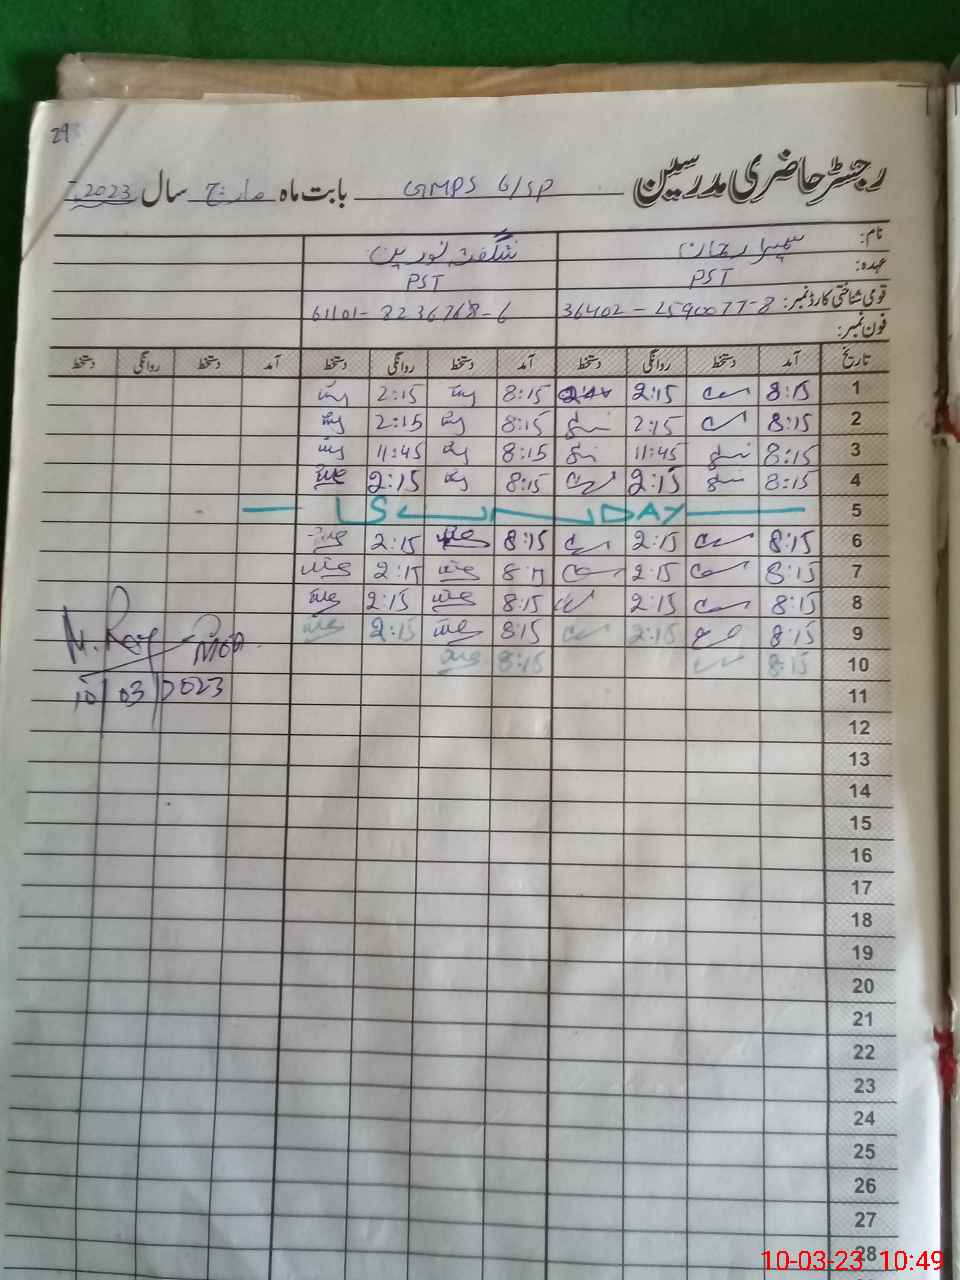 29
رجسٹر حاضری مدرسین GMPS 6/SP بابت ماہ مارچ سال 2023
نام: سمیرا رحمان شگفتہ نورین
عہدہ: PST PST
قومی شناختی کارڈ نمبر: 36402-2590077-8 61101-8236768-6
فون نمبر:
تاریخ آمد دستخط روانگی دستخط آمد دستخط روانگی دستخط آمد دستخط روانگی دستخط
1 8:15 2:15 8:15 2:15
2 8:15 2:15 8:15 2:15
3 8:15 11:45 8:15 11:45
4 8:15 2:15 8:15 2:15
5 SUNDAY
6 8:15 2:15 8:15 2:15
7 8:15 2:15 8:15 2:15
8 8:15 2:15 8:15 2:15
9 8:15 2:15 8:15 2:15
10 8:15 8:15
11
10/03/2023
12
13
14
15
16
17
18
19
20
21
22
23
24
25
26
27
28
10-03-23 10:49